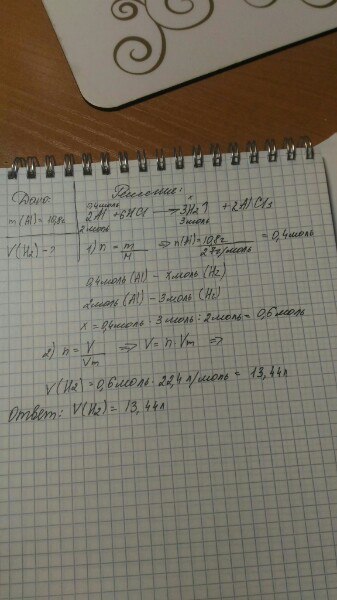 Дано:
m(Al)=10,8г
V(H2)-?
Решение:
0,4моль x
2Al+6HCl→3H2↑+2AlCl3
2моль 3моль
1) n = m/M ⇒ n(Al)=10,8г/27г/моль = 0,4моль
0,4моль(Al) - xмоль(H2)
2моль(Al) - 3моль(H2)
x = 0,4моль · 3моль : 2моль = 0,6моль
2) n = V/Vm ⇒ V=n·Vm ⇒
V(H2)=0,6моль·22,4л/моль = 13,44л
Ответ: V(H2)= 13,44л